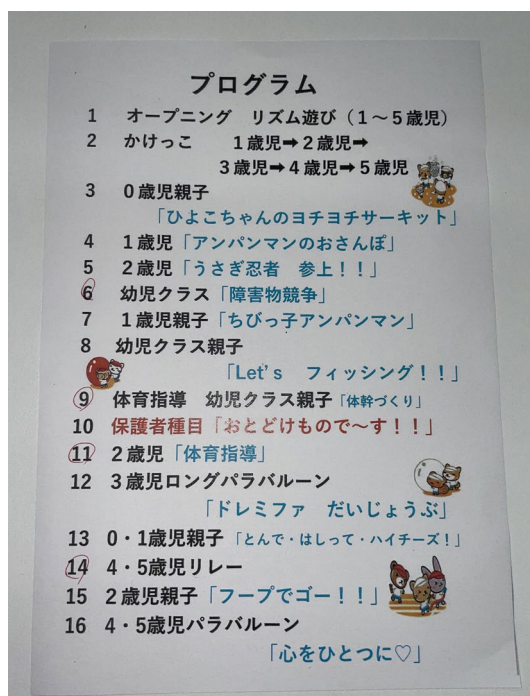 プログラム
1 オープニング リズム遊び（１～５歳児）
2 かけっこ １歳児➡２歳児➡
３歳児➡４歳児➡５歳児
3 ０歳児親子
「ひよこちゃんのヨチヨチサーキット」
4 １歳児「アンパンマンのおさんぽ」
5 ２歳児「うさぎ忍者 参上！！」
6 幼児クラス「障害物競争」
7 １歳児親子「ちびっ子アンパンマン」
8 幼児クラス親子
「Let's フィッシング！！」
9 体育指導 幼児クラス親子「体幹づくり」
10 保護者種目「おとどけもので～す！！」
11 ２歳児「体育指導」
12 ３歳児ロングパラバルーン
「ドレミファ だいじょうぶ」
13 0・1歳児親子「とんで・はしって・ハイチーズ！」
14 4・5歳児リレー
15 ２歳児親子「フープでゴー！！」
16 4・5歳児パラバルーン
「心をひとつに♡」